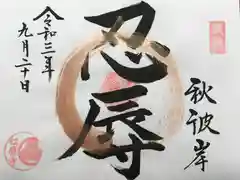 秋彼岸
忍辱
令和三年
九月二十日